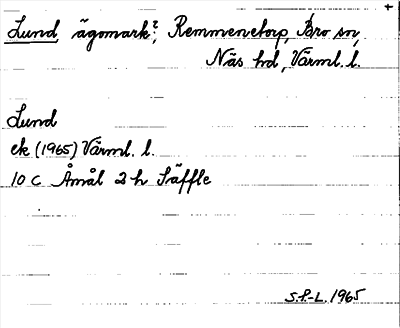 Lund ägomark?, Remmenetorp, Bro sn,
Näs hd, Värml. l.
Lund
ek (1965) Värml. l.
10 C Åmål 2 h Säffle
S.F-L. 1965